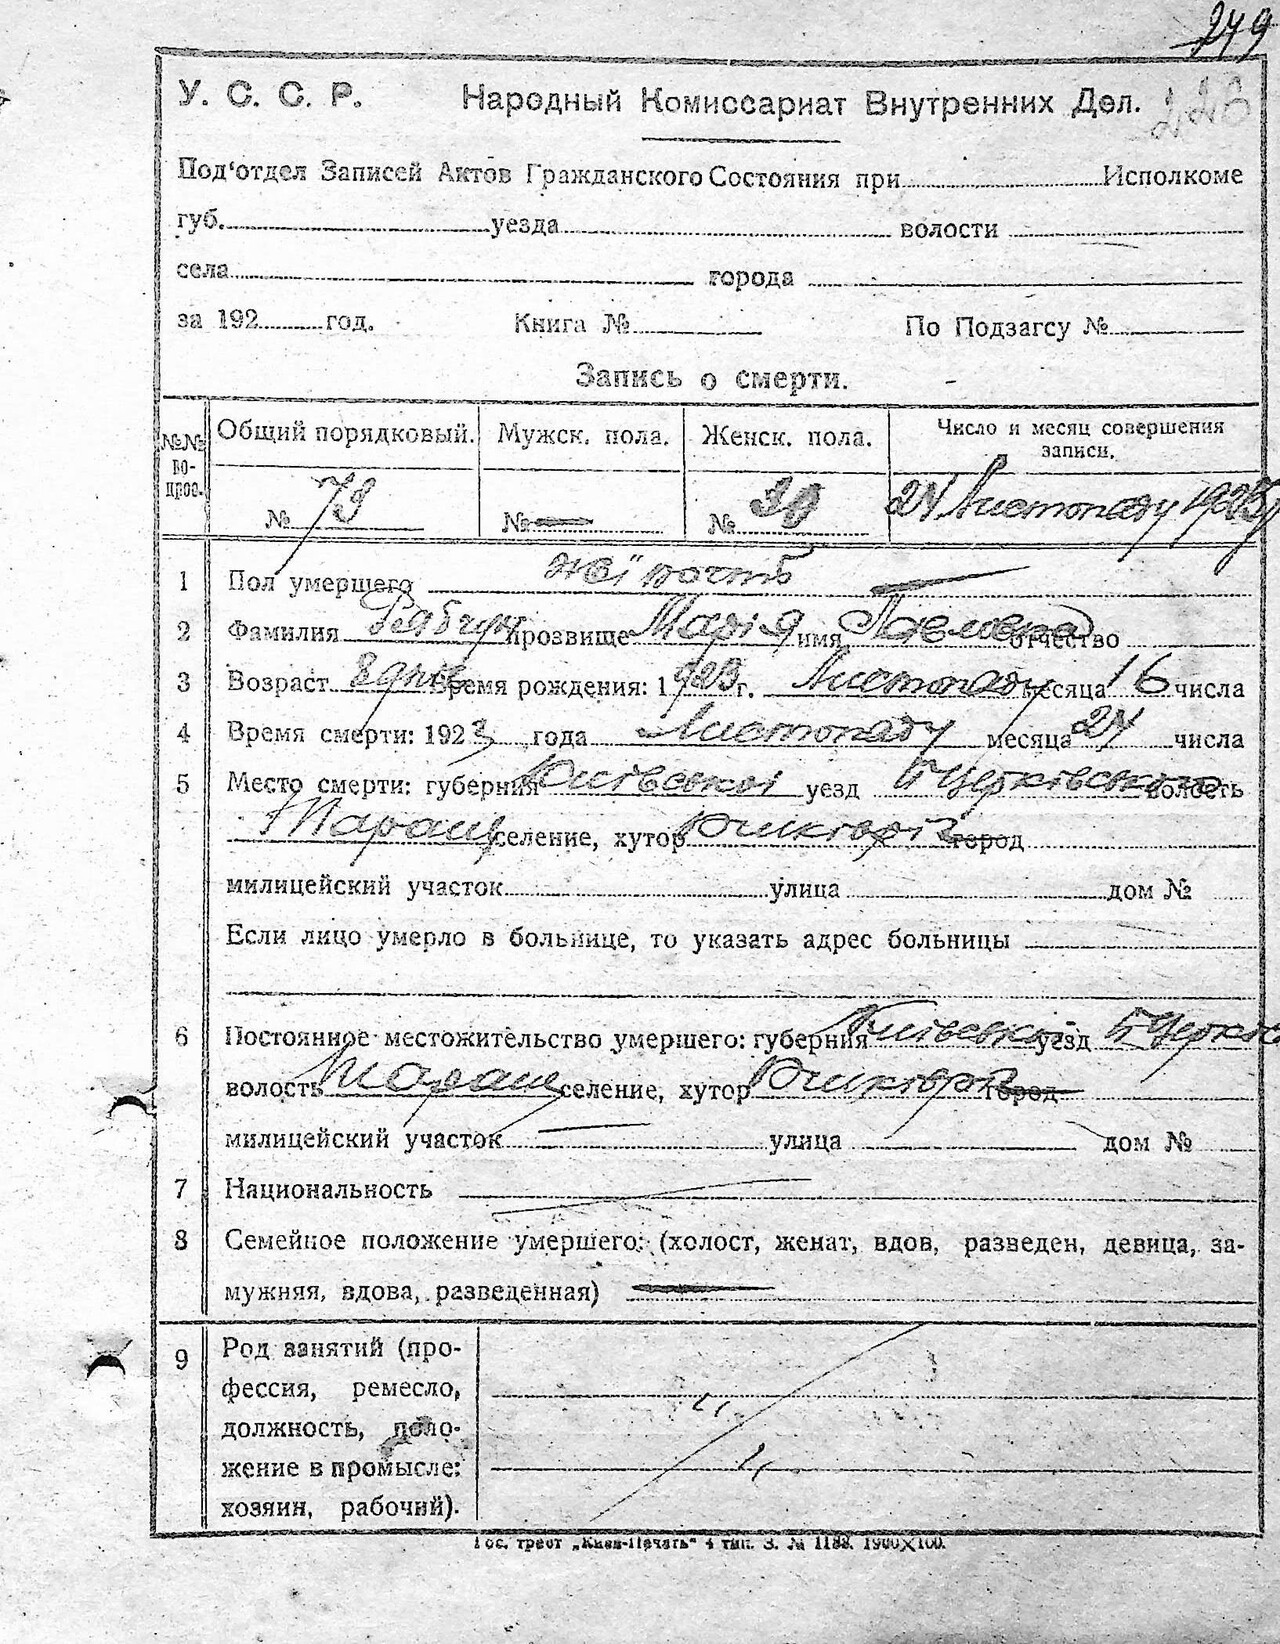 249
223
У. С. С. Р. Народный Комиссариат Внутренних Дел.
Под‘отдел Записей Актов Гражданского Состояния при Исполкоме
губ. уезда волости
села города
за 192 год. Книга № По Подзагсу №
Запись о смерти.
№№ во-прос. Общий порядковый. Мужск. пола. Женск. пола. Число и месяц совершения записи.
№ 73 № — № 30 24 Листопаду 1923
1 Пол умершего жіночть
2 Фамилия Рябчун прозвище Марія имя отчество
3 Возраст 8 днів Время рождения: 1923 г. Листопаду месяца 16 числа
4 Время смерти: 1923 года Листопаду месяца 24 числа
5 Место смерти: губерния Київської уезд Б Церківського волость
Таращ селение, хутор город
милицейский участок улица дом №
Если лицо умерло в больнице, то указать адрес больницы
6 Постоянное местожительство умершего: губерния Київської уезд Б Церків
волость Таращ селение, хутор город
милицейский участок улица дом №
7 Национальность
8 Семейное положение умершего: (холост, женат, вдов, разведен, девица, за-
мужняя, вдова, разведенная)
9 Род занятий (про-
фессия, ремесло,
должность, поло-
жение в промысле:
хозяин, рабочий).
Гос. трест „Киев-Печать“ 4 тип. З. № 1188. 1900×100.